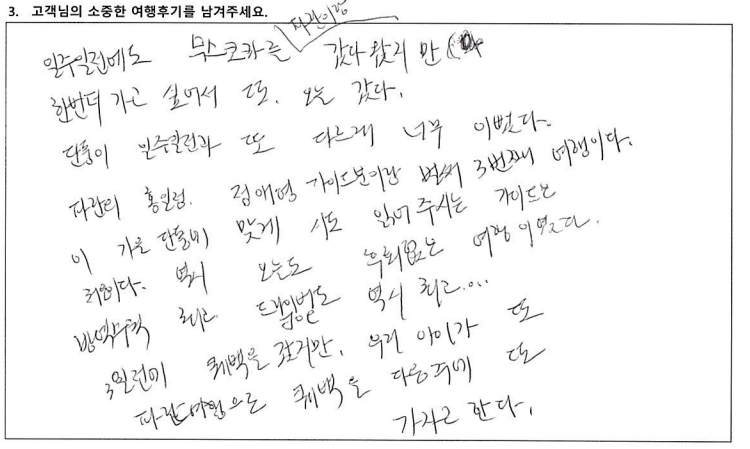 3. 고객님의 소중한 여행후기를 남겨주세요.
파란이랑
일주일전에도 무스코카를 갔다왔지만
한번더 가고 싶어서 또. 오늘 갔다.
단풍이 일주일전과 또 다르게 너무 이뻤다.
파란의 홍일점. 정애영 가이드분이랑 벌써 3번째 여행이다.
이 가을 단풍에 맞게 시도 읽어주시는 가이드는
처음이다. 역시 오늘도 후회없는 여행이었다.
방역수칙 최고 드라이버님도 역시 최고...
3일전에 퀘백을 갔지만, 우리 아이가 또
파란여행으로 퀘백을 다음주에 또
가자고 한다.